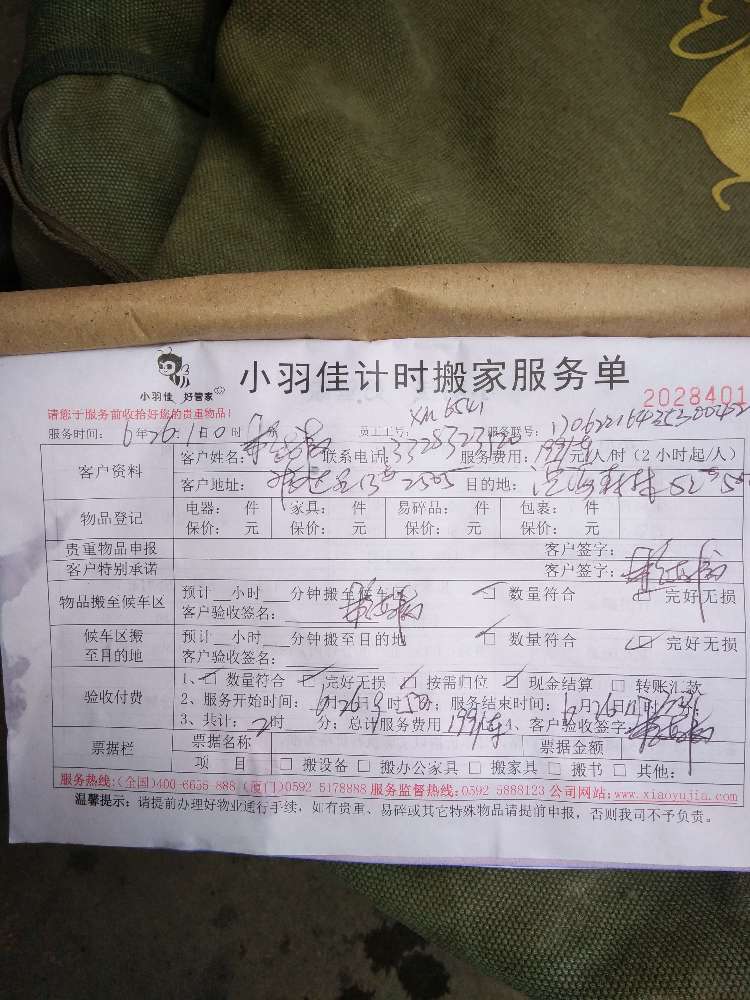 小羽佳 好管家
小羽佳计时搬家服务单
2028401
请您于服务前收拾好您的贵重物品!
XM6541
服务时间: 6年26月1日0时 分 员工工号: 服务联号:
客户资料
客户姓名: 联系电话: 服务费用: 199/车 元/人/时 (2小时起/人)
客户地址: 目的地:
物品登记
电器: 件 家具: 件 易碎品: 件 包裹: 件
保价: 元 保价: 元 保价: 元 保价: 元
贵重物品申报 客户签字:
客户特别承诺 客户签字:
物品搬至候车区
预计__小时___分钟搬至候车区 ☑ 数量符合 ☑ 完好无损
客户验收签名:
候车区搬至目的地
预计__小时___分钟搬至目的地 ☑ 数量符合 ☑ 完好无损
客户验收签名:
验收付费
1、☑ 数量符合 ☑ 完好无损 ☑ 按需归位 ☑ 现金结算 □ 转账汇款
2、服务开始时间: 6月26日9时50分; 服务结束时间: 6月26日
3、共计: 2时___分; 总计服务费用 199/车 4、客户验收签字:
票据栏
票据名称 票据金额
项 目 □ 搬设备 □ 搬办公家具 □ 搬家具 □ 搬书 □ 其他:
服务热线:(全国)400-6655-888 (厦门)0592 5178888 服务监督热线:0592 5888123 公司网站:www.xiaoyujia.com
温馨提示: 请提前办理好物业通行手续, 如有贵重、易碎或其它特殊物品请提前申报, 否则我司不予负责。